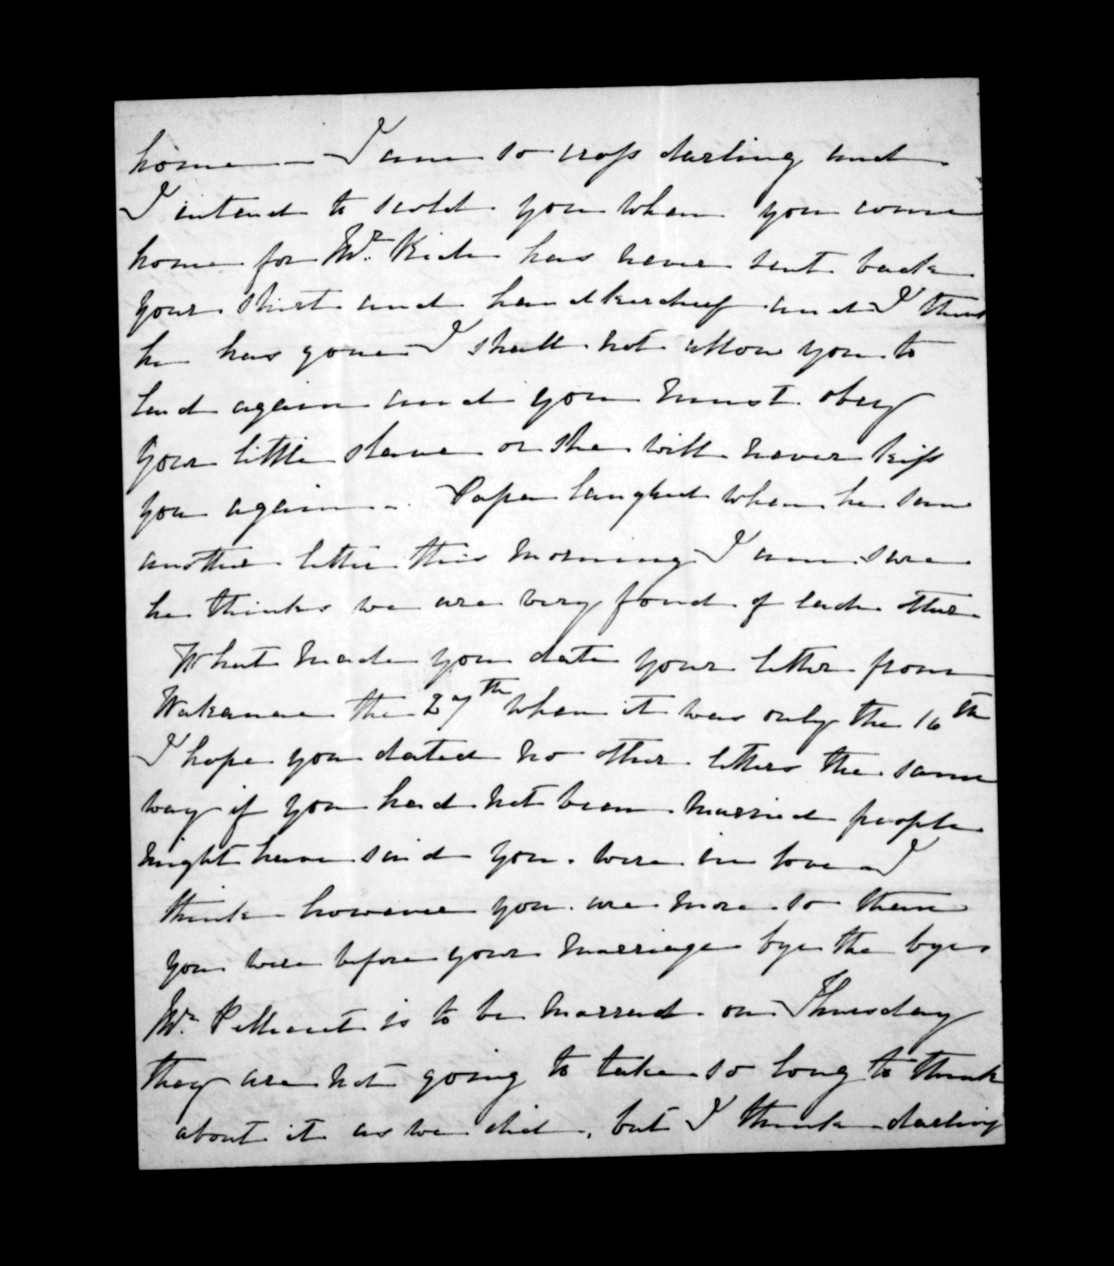 home - I am so cross darling and
I intend to scold you when you come
home for Mr. has never sent back
your shirt and handkerchief and I think
he has gone I shall not allow you to
lend again and you must obey
your little slave or she will never kiss
you again -. Papa laughed when he saw
another letter this morning I am sure
he thinks we are very fond of each other
What made you date your letter from
Wakanae the 27th when it was only the 16th
I hope you dated no other letters the same
way if you had not been married people
might have said you. were in love I
think however you are more so than
you were before your marriage bye the bye
Mr. is to be married on Thursday
they are not going to take so long to think
about it as we did, but I think darling